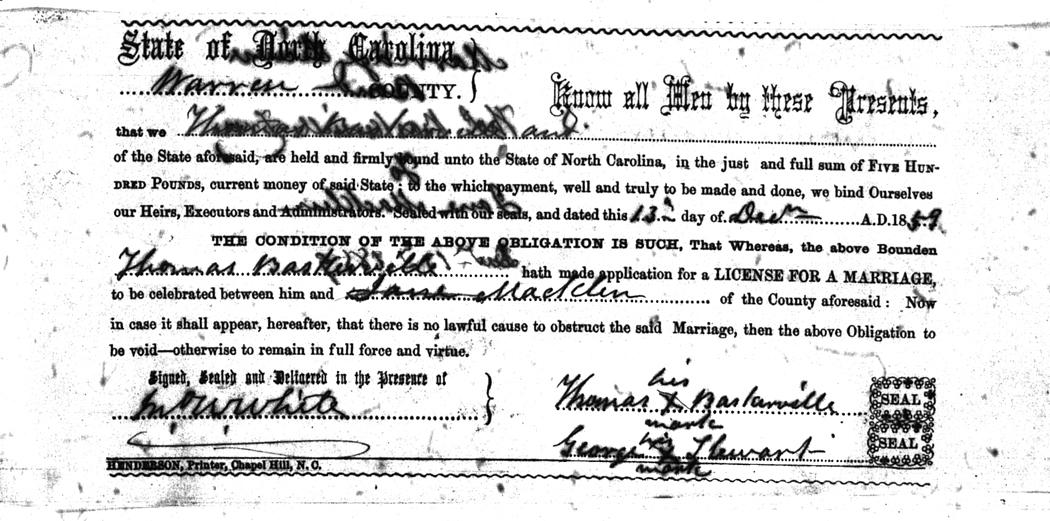 State of North Carolina,
Warren COUNTY.
Know all Men by these Presents,
that we Thomas Baskerville and
of the State aforesaid, are held and firmly bound unto the State of North Carolina, in the just and full sum of FIVE HUN-
DRED POUNDS, current money of said State; to the which payment, well and truly to be made and done, we bind Ourselves
our Heirs, Executors and Administrators. Sealed with our seals, and dated this 13 day of Decr A.D. 1859
THE CONDITION OF THE ABOVE OBLIGATION IS SUCH, That Whereas, the above Bounden
Thomas Baskerville hath made application for a LICENSE FOR A MARRIAGE,
to be celebrated between him and Jane Macklin of the County aforesaid: Now
in case it shall appear, hereafter, that there is no lawful cause to obstruct the said Marriage, then the above Obligation to
be void—otherwise to remain in full force and virtue.
Signed, Sealed and Delivered in the Presence of
Jno W White
his
Thomas X Baskerville SEAL
mark
his
George X Stewart SEAL
mark
HENDERSON, Printer, Chapel Hill, N. C.